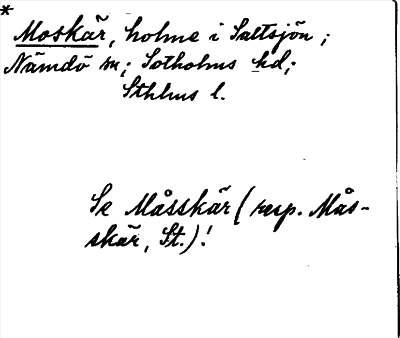 *
Moskär, holme i Saltsjön;
Nämdö sn; Sotholms hd;
Sthlms l.
Se Måsskär (resp. Mås-
skär, St.)!